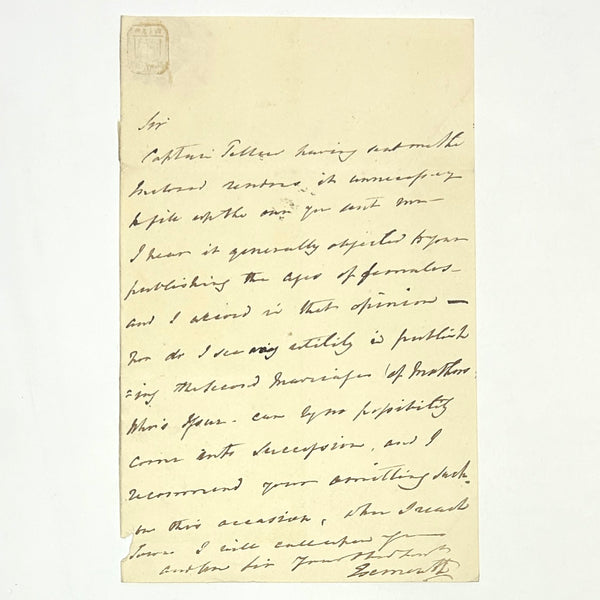 Sir
Captain having sent me the
Inclosed renders it unnecessary
to fill up the one you sent me —
I hear it generally objected to your
publishing the ages of females —
and I accord in that opinion —
nor do I see any utility in publish
=ing the second Marriages of Mothers
who's Issue can by no possibility
come into succession, and I
recommend your omitting such
on this occasion, when I reach
Town I will call upon you
and am Sir Your
Exmouth